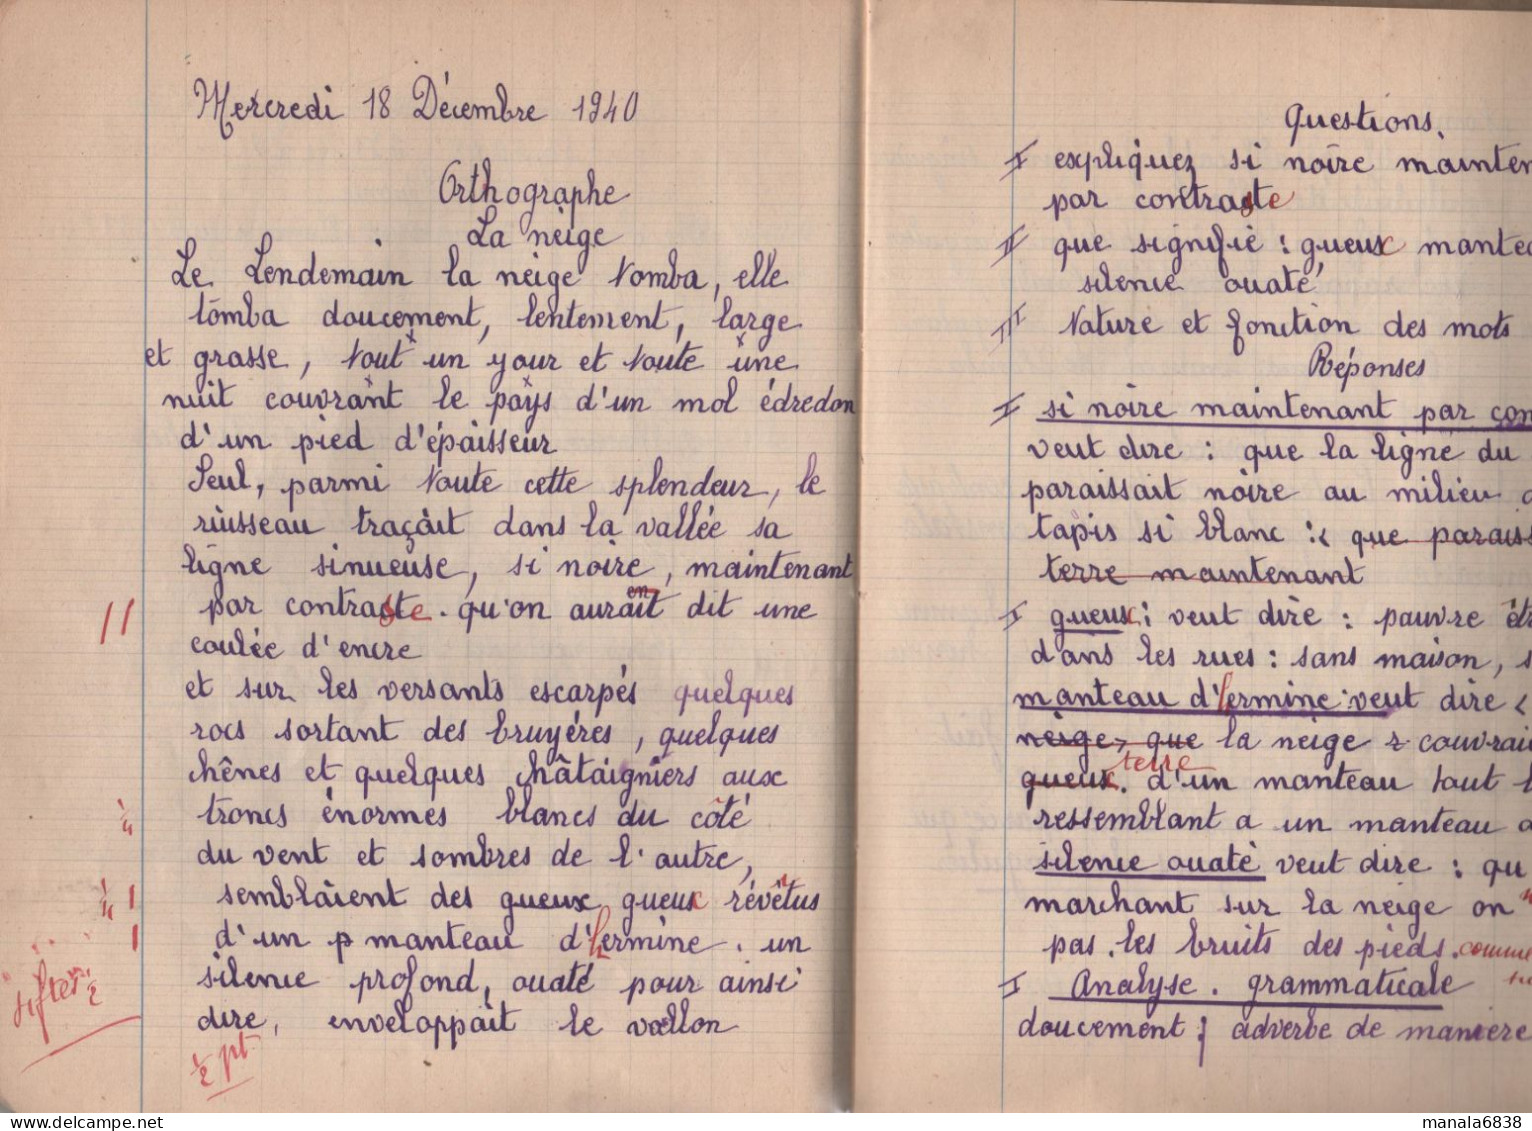 Mercredi 18 Décembre 1940
Orthographe
La neige
Le Lendemain la neige tomba, elle
tomba doucement, lentement, large
et grasse, tout un jour et toute une
nuit couvrant le pays d'un mol édredon
d'un pied d'épaisseur
Seul, parmi toute cette splendeur, le
ruisseau traçait dans la vallée sa
ligne sinueuse, si noire, maintenant
en
par contraste. qu'on aurait dit une
11
coulée d'encre
et sur les versants escarpés quelques
rocs sortant des bruyéres, quelques
chênes et quelques châtaigniers aux
troncs énormes blancs du côté
1/4
du vent et sombres de l'autre,
semblaient des gueux gueux révêtus
1/4 1
d'un p manteau d'hermine. un
1
silence profond, ouaté pour ainsi
1/2
dire, enveloppait le vallon
1/2 pt
Questions.
I expliquez si noire mainten
par contraste
II que signifie : gueux mantea
silence ouaté
III Nature et fonction des mots
Réponses
I si noire maintenant par con
veut dire : que la ligne du
paraissait noire au milieu d
tapis si blanc : que paraiss
terre maintenant
I gueux : veut dire : pauvre êtr
dans les rues : sans maison, s
manteau d'hermine veut dire
neige, que la neige r couvrai
terre
gueux. d'un manteau tout b
ressemblant a un manteau d
silence ouaté veut dire : qu
marchant sur la neige on
pas. les bruits des pieds. comme
I Analyse. grammaticale
doucement ; adverbe de maniere
manala6838